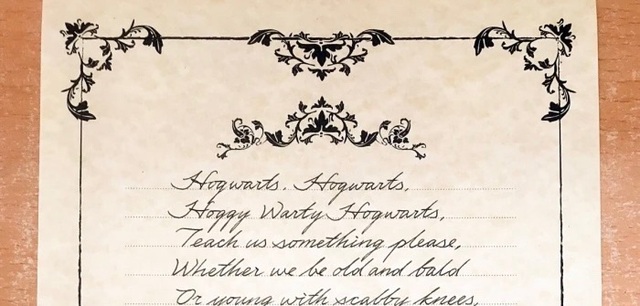 Hogwarts. Hogwarts,
Hoggy Warty Hogwarts,
Teach us something please,
Whether we be old and bald
Or young with scabby knees,